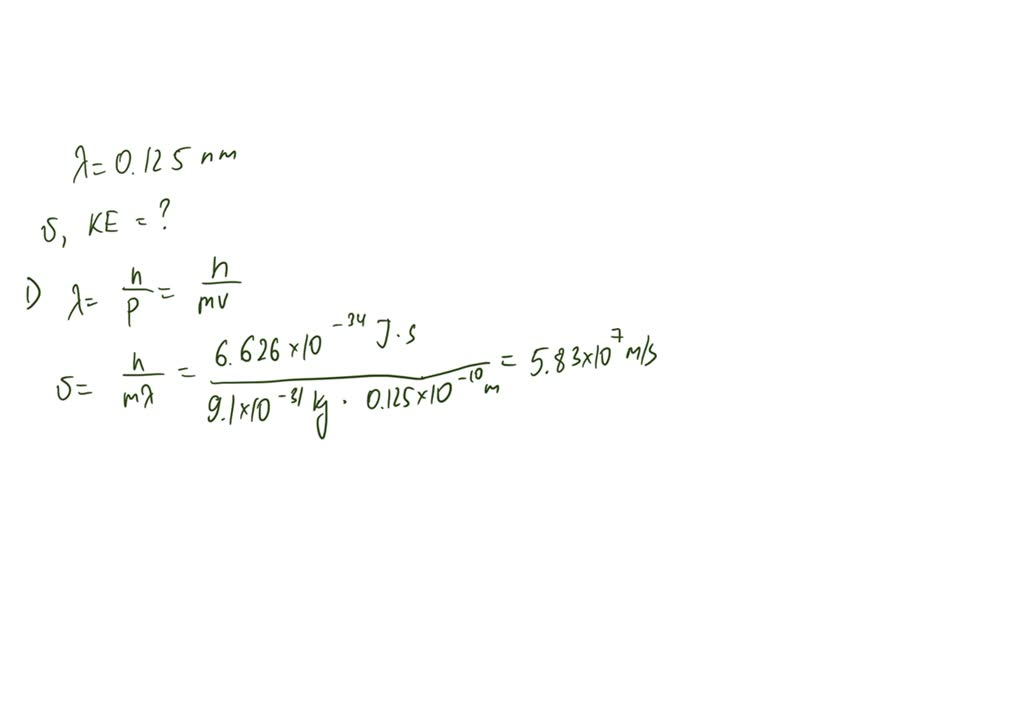 λ = 0.125 nm
v, KE = ?
1) λ = h/p = h/mv
v = h/mλ = 6.626 × 10^-34 J·s / 9.1 × 10^-31 kg · 0.125 × 10^-10 m = 5.83 × 10^7 m/s